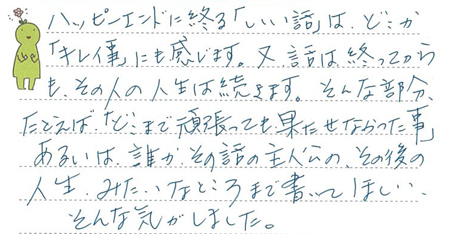 ハッピーエンドに終る「いい話」は、どこか
「キレイ事」にも感じます。又、話は終ってから
も、その人の人生は続きます。そんな部分、
たとえば、「どこまで頑張っても果たせなかった事」
あるいは、誰か、その話の主人公の、その後の
人生、みたいなところまで書いてほしい、
そんな気がしました。